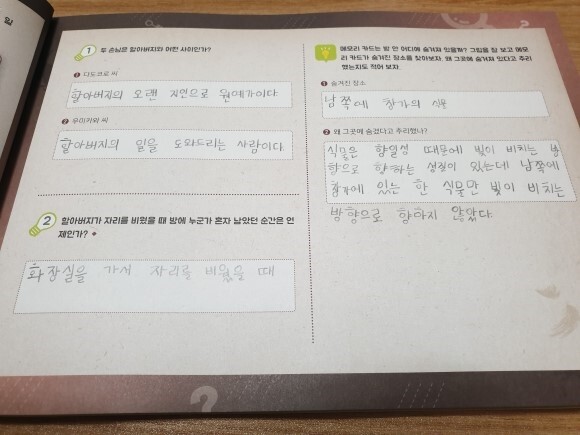 일
1 두 손님은 할아버지와 어떤 사이인가?
❶ 다도코로 씨
할아버지의 오랜 지인으로 원예가이다.
❷ 우미카와 씨
할아버지의 일을 도와드리는 사람이다.
2 할아버지가 자리를 비웠을 때 방에 누군가 혼자 남았던 순간은 언
제인가?
화장실을 가서 자리를 비웠을 때
메모리 카드는 방 안 어디에 숨겨져 있을까? 그림을 잘 보고 메모
리 카드가 숨겨진 장소를 찾아보자. 왜 그곳에 숨겨져 있다고 추리
했는지도 적어 보자.
❶ 숨겨진 장소
남쪽에 창가의 식물
❷ 왜 그곳에 숨겼다고 추리했나?
식물은 향일성 때문에 빛이 비치는 방
향으로 향하는 성질이 있는데 남쪽에
창가에 있는 한 식물만 빛이 비치는
방향으로 향하지 않았다.